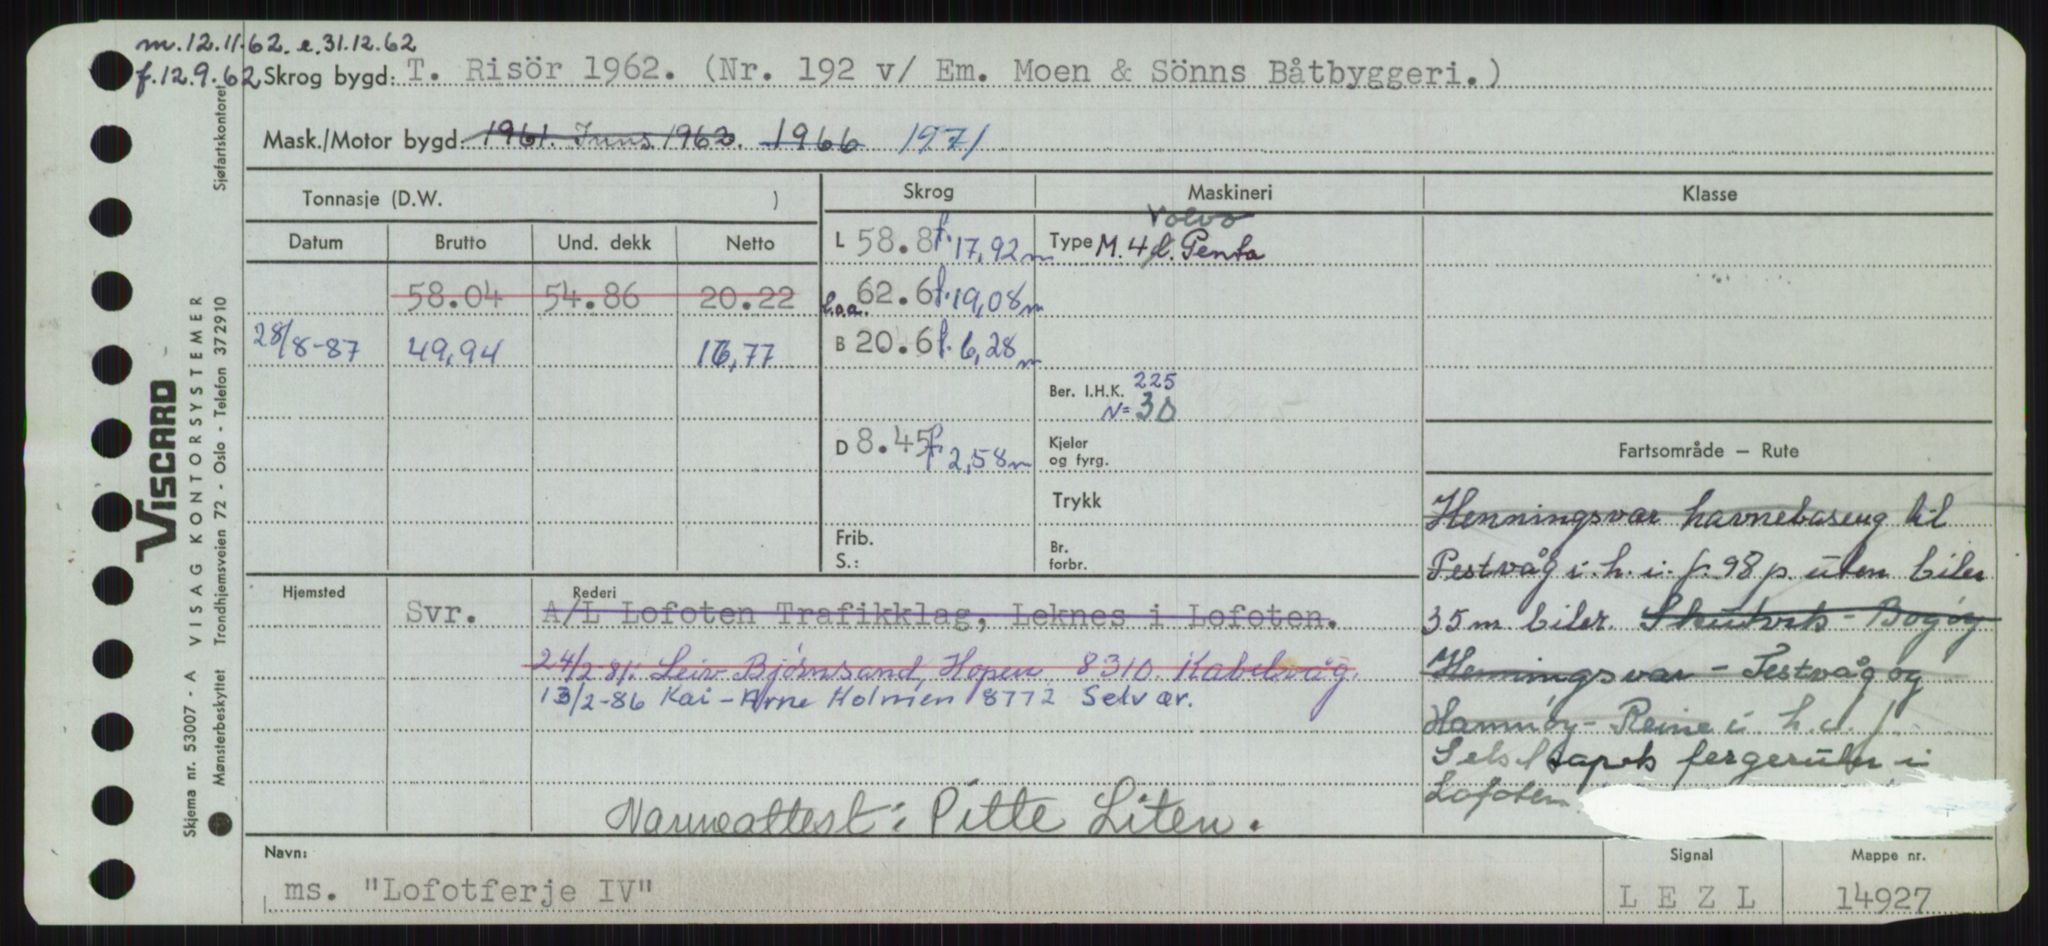 m. 12.11.62. e. 31.12.62
f. 12.9.62 Skrog bygd: T. Risör 1962. (Nr. 192 v/ Em. Moen & Sönns Båtbyggeri.)
Mask./Motor bygd: 1961. Inns. 1962. 1966 1971
Tonnasje (D.W. )
Skrog
Maskineri
Klasse
Datum Brutto Und. dekk Netto
58.04 54.86 20.22
28/8-87 49,94 16,77
L 58.8 f. 17,92 m
L.o.a. 62.6 f. 19,08 m
B 20.6 f. 6,28 m
D 8.45 f. 2,58 m
Frib.
S.:
Volvo
Type M. 4 f. Penta
Ber. I.H.K. 225
N= 30
Kjeler
og fyrg.
Trykk
Br.
forbr.
Fartsområde – Rute
Henningsvær havnebaseng til
Festvåg i. h. i. f. 98 p. uten biler
35 m biler. Skutvik - Bogöy
Henningsvær - Festvåg og
Hamnöy - Reine i. h. i.
Selskapets fergeruter i
Lofoten
Hjemsted
Svr.
Rederi
A/L Lofoten Trafikklag, Leknes i Lofoten.
24/2-81: Leiv Bjórnsand, Hopen 8310 Kabelvåg.
13/2-86 Kai-Arne Holmen 8772 Selvær.
Navneattest: Pitte Liten.
Navn:
ms. "Lofotferje IV"
Signal
L E Z L
Mappe nr.
14927
VISCARD
Skjema nr. 53007 - A VISAG KONTORSYSTEMER
Mønsterbeskyttet Trondhjemsveien 72 - Oslo - Telefon 372910
Sjøfartskontoret